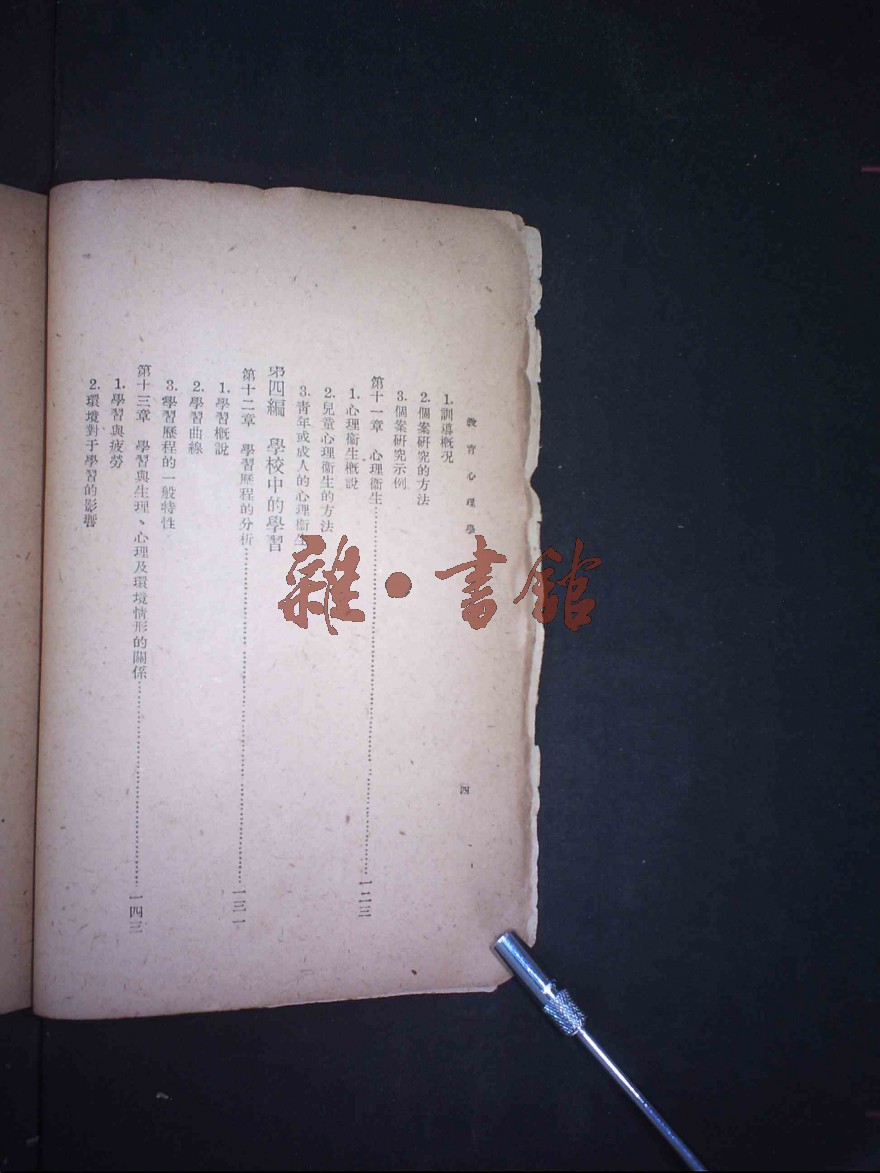 教育心理學
四
1. 訓導概況
2. 個案研究的方法
3. 個案研究示例
第十一章 心理衞生……一二三
1. 心理衞生概說
2. 兒童心理衞生的方法
3. 靑年或成人的心理衞生
第四編 學校中的學習
第十二章 學習歷程的分析……一三一
1. 學習概說
2. 學習曲線
3. 學習歷程的一般特性
第十三章 學習與生理、心理及環境情形的關係……一四三
1. 學習與疲勞
2. 環境對于學習的影響
雜·書館